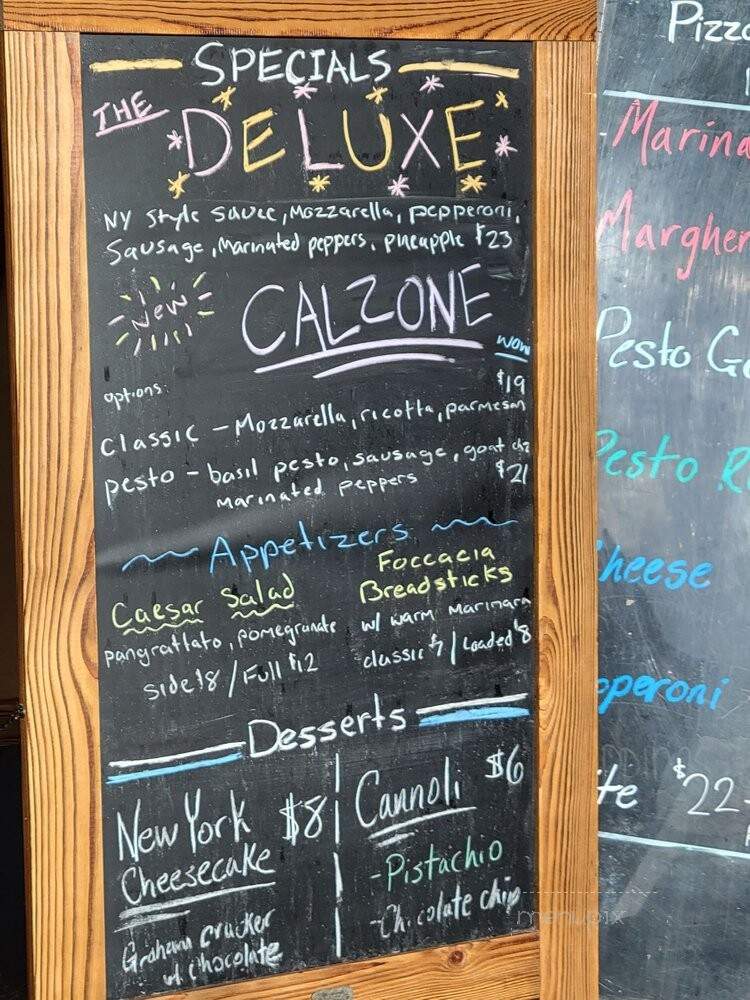 SPECIALS
THE
DELUXE
NY Style Sauce, Mozzarella, pepperoni,
Sausage, Marinated peppers, pineapple $23
New
CALZONE
wow
options:
$19
Classic - Mozzarella, ricotta, parmesan
pesto - basil pesto, sausage, goat chz
Marinated peppers $21
Appetizers
Caesar Salad
pangrattato, pomegranate
side $8 / Full $12
Foccacia
Breadsticks
w/ warm Marinara
classic $7 / Loaded $8
Desserts
New York $8
Cheesecake
Graham cracker
w/ chocolate
Cannoli $6
- Pistachio
- Chocolate chip
Pizza
Marina
Margher
Pesto G
Pesto R
heese
pperoni
ite $22
menupix